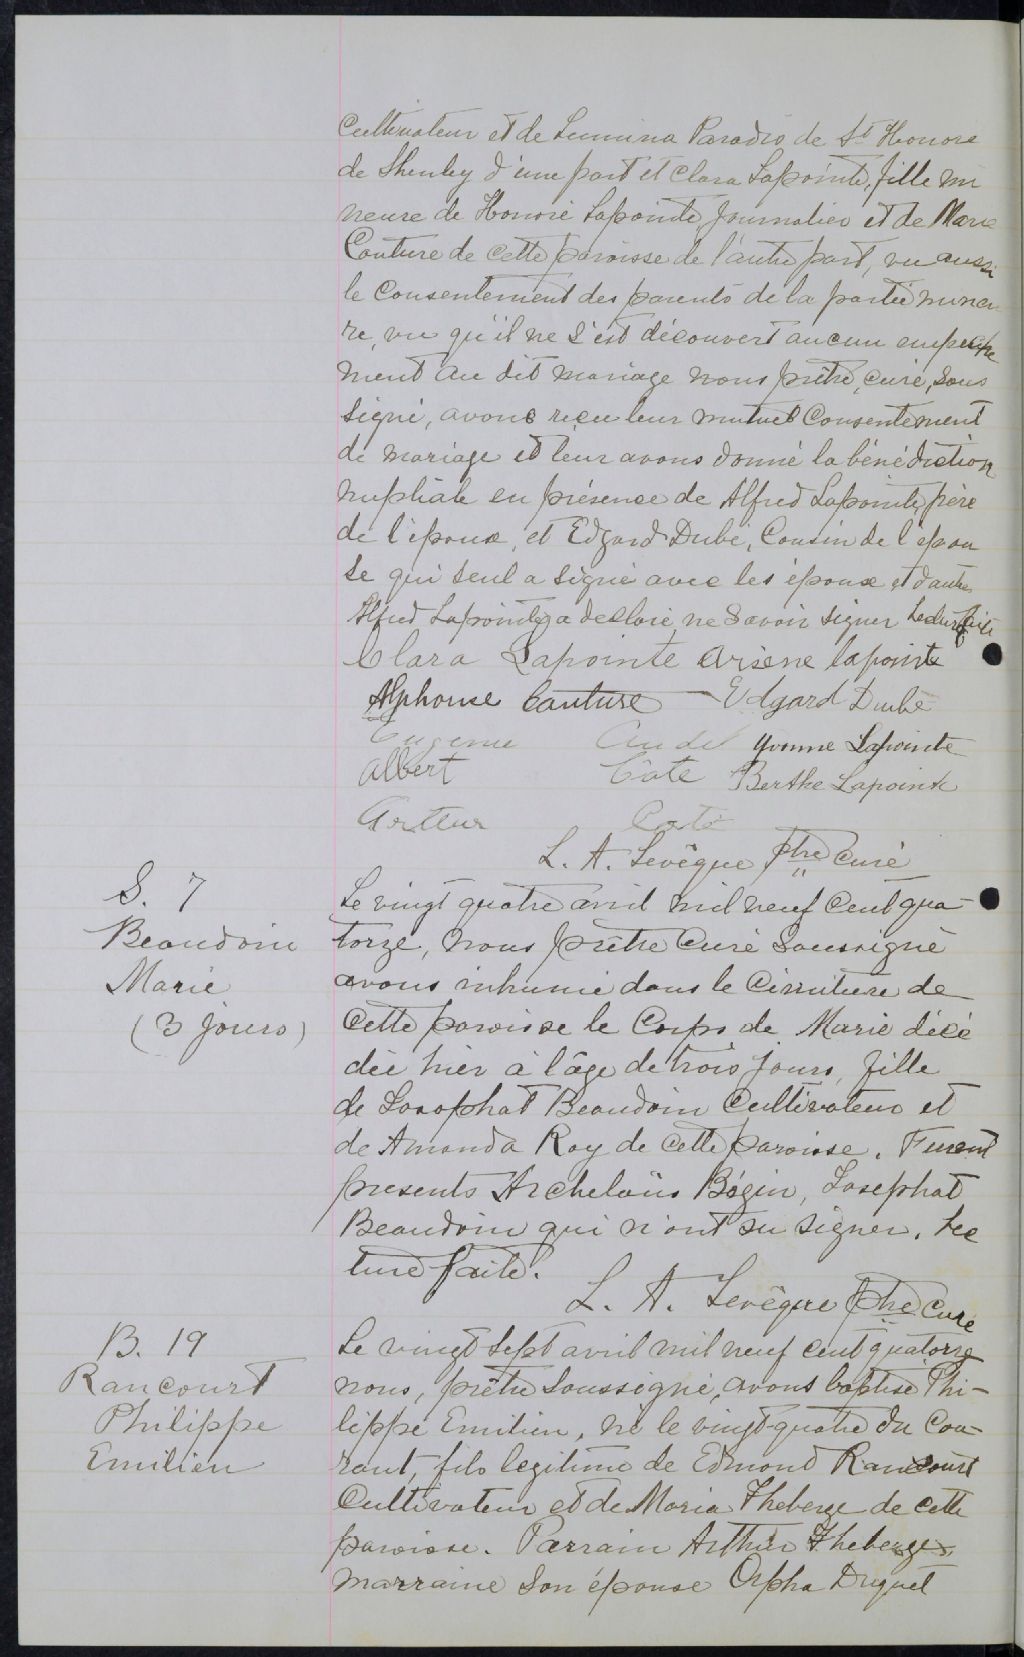 Cultivateur et de Lumina Paradis de St Honore
de Shenley d'une part et Clara Lapointe, fille mi
neure de Honoré Lapointe, Journalier et de Marie
Couture de cette paroisse de l'autre part, vu aussi
le consentement des parents de la partie mineu
re, vu qu'il ne s'est découvert aucun empeche
ment au dit mariage nous prêtre, curé, sous
signé, avons reçu leur mutuel Consentement
de mariage et leur avons donné la bénédiction
nuptiale en présence de Alfred Lapointe, père
de l'époux, et Edgard Dubé, Cousin de l'épou
se qui seul a signé avec les époux et d'autres
Alfred Lapointe a declaré ne savoir signer Lecture faite
Clara Lapointe Arsène lapointe
Alphonse Couture Edgard Dubé
Eugenie Audet Yvonne Lapointe
Albert Cote Berthe Lapointe
Arthur Coté
L. A. Levêque ptre curé
S. 7
Beaudoin
Marie
(3 jours)
Le vingt quatre avril mil neuf cent qua-
torze, nous prêtre curé soussigné
avons inhumé dans le Cimetière de
cette paroisse le Corps de Marie décé
dée hier à l'âge de trois jours, fille
de Josophat Beaudoin Cultivateur et
de Amanda Roy de cette paroisse. Furent
presents Archelaüs Bégin, Josephat
Beaudoin qui n'ont su signer. Lec
ture faite.
L. A. Levêque ptre Curé
B. 19
Rancourt
Philippe
Emilien
Le vingt sept avril mil neuf cent quatorze
nous, prêtre soussigné, avons baptisé Phi-
lippe Emilien, né le vingt-quatre du cou-
rant, fils legitime de Edmond Rancourt
Cultivateur et de Maria Theberge de cette
paroisse. Parrain Arthur Theberge,
marraine son épouse Orpha Duquet